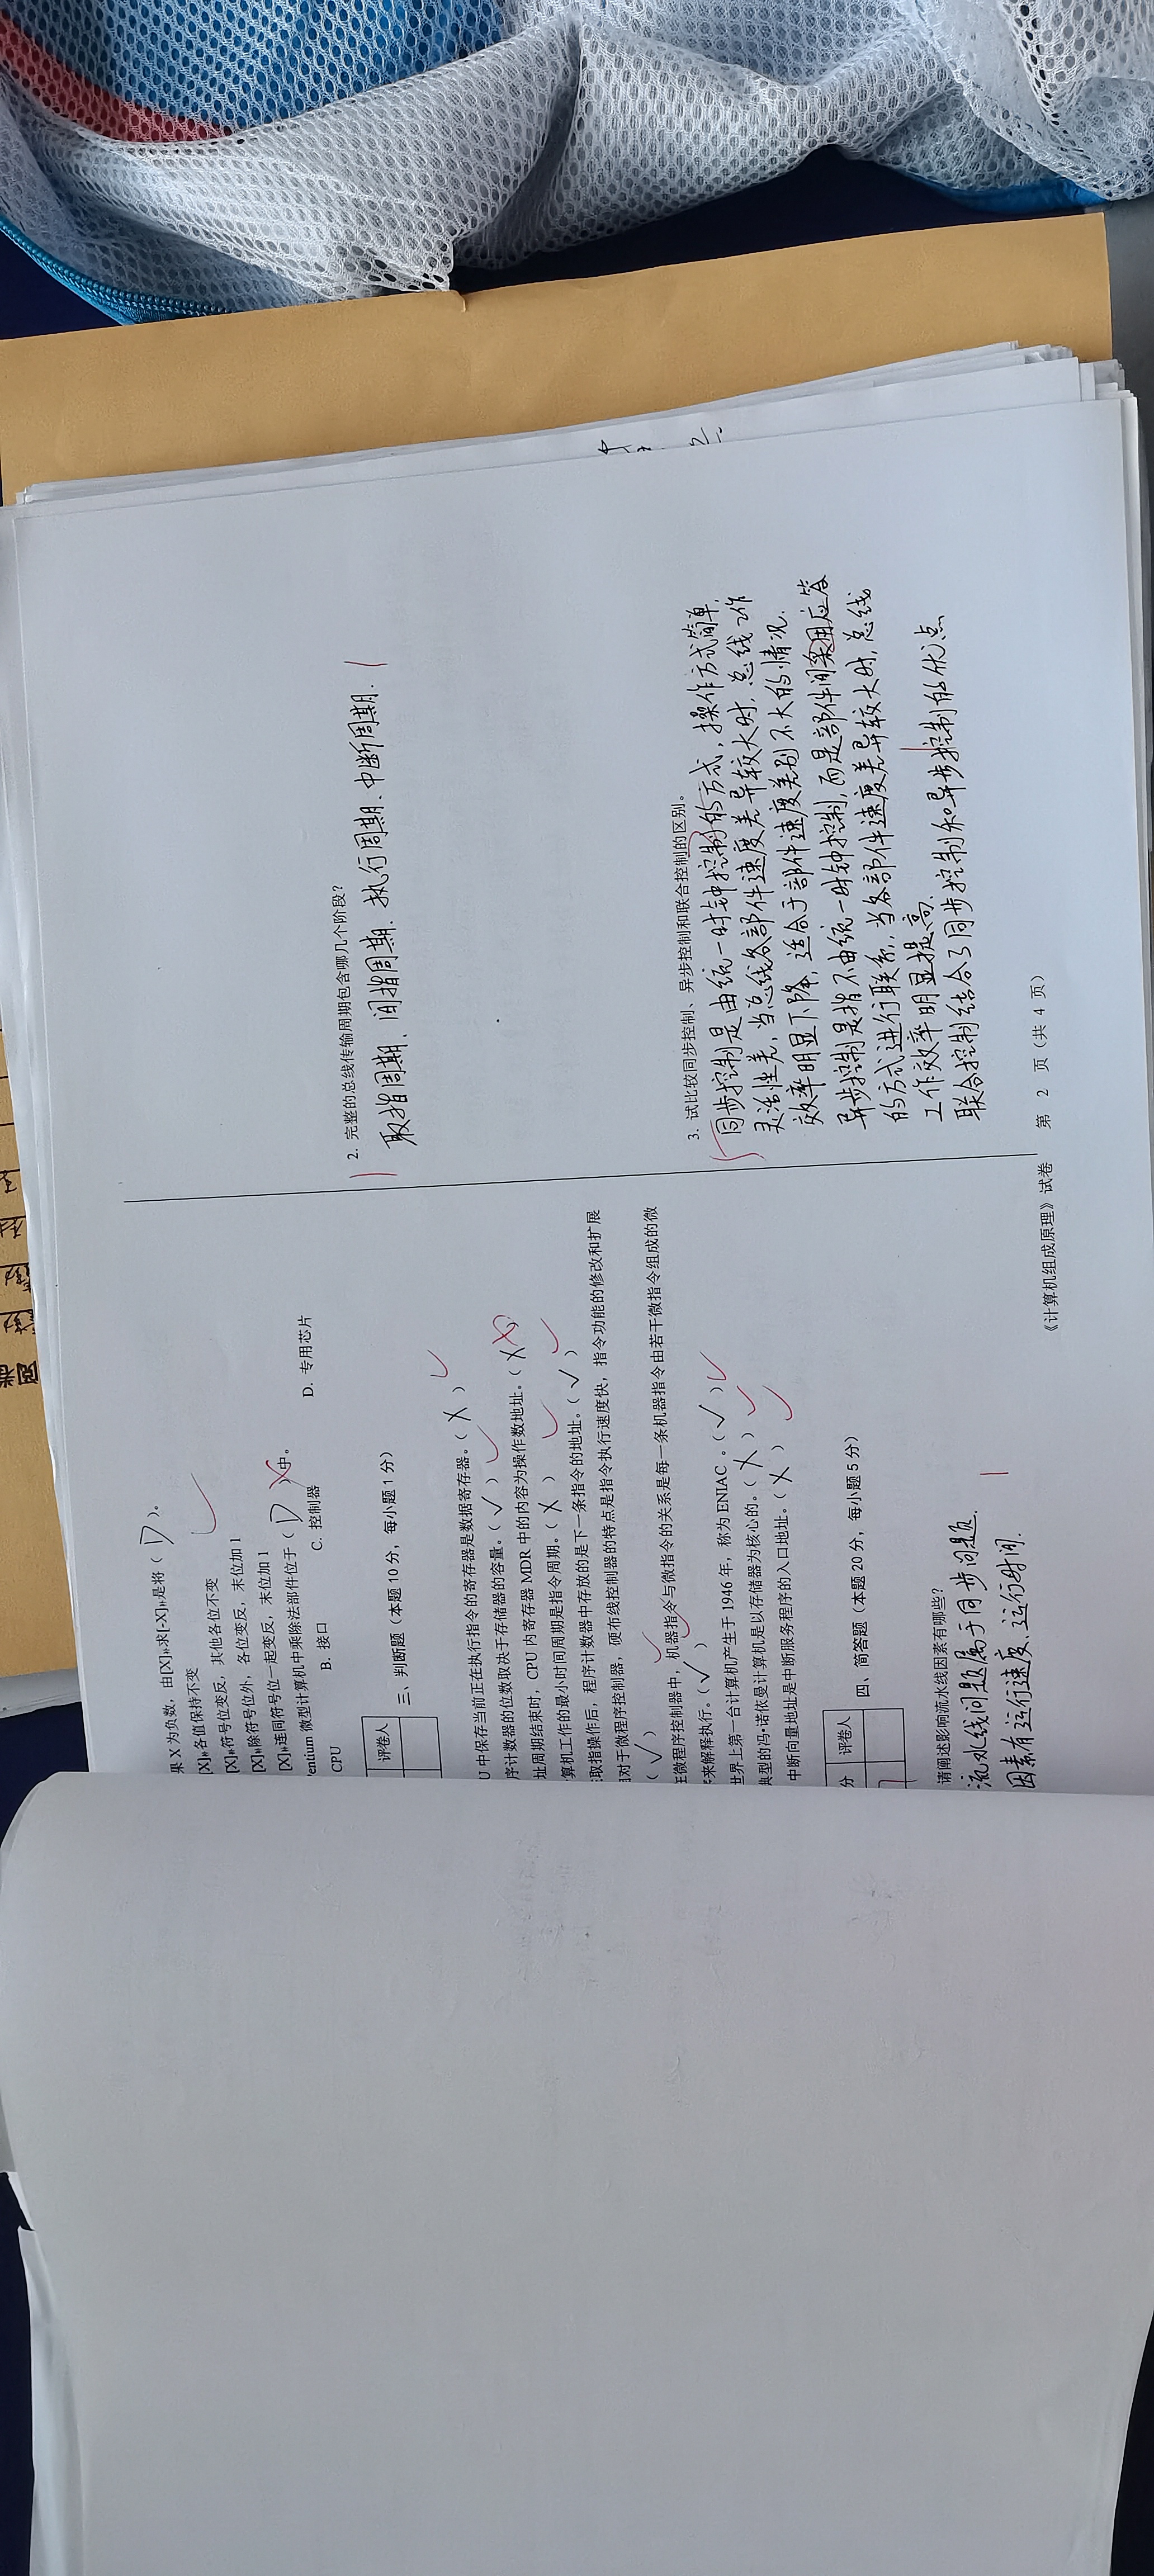 阅卷
果 X 为负数，由[X]补求[-X]补是将（ D ）。
[X]补各值保持不变
[X]补符号位变反，其他各位不变
[X]补除符号位外，各位变反，末位加 1
[X]补连同符号位一起变反，末位加 1
entium 微型计算机中乘除法部件位于（ D ）中。
CPU B. 接口 C. 控制器 D. 专用芯片
评卷人
三、判断题（本题 10 分，每小题 1 分）
U 中保存当前正在执行指令的寄存器是数据寄存器。（ X ）
序计数器的位数取决于存储器的容量。（ √ ）
址周期结束时，CPU 内寄存器 MDR 中的内容为操作数地址。（ X ）
算机工作的最小时间周期是指令周期。（ X ）
取指操作后，程序计数器中存放的是下一条指令的地址。（ √ ）
对于微程序控制器，硬布线控制器的特点是指令执行速度快，指令功能的修改和扩展
（ √ ）
在微程序控制器中，机器指令与微指令的关系是每一条机器指令由若干微指令组成的微
来解释执行。（ √ ）
世界上第一台计算机产生于 1946 年，称为 ENIAC 。（ √ ）
典型的冯•诺依曼计算机是以存储器为核心的。（ X ）
中断向量地址是中断服务程序的入口地址。（ X ）
分 评卷人
四、简答题（本题 20 分，每小题 5 分）
请阐述影响流水线因素有哪些？
流水线问题属于同步问题.
因素有运行速度、运行时间.
2. 完整的总线传输周期包含哪几个阶段？
取指周期、间指周期、执行周期、中断周期.
3. 试比较同步控制、异步控制和联合控制的区别。
同步控制是由统一时钟控制的方式，操作方式简单，
灵活性差，当总线各部件速度差异较大时，总线工作
效率明显下降，适合于部件速度差别不大的情况.
异步控制是指不由统一时钟控制，而是部件间采用应答
的方式进行联系，当各部件速度差异较大时，总线
工作效率明显提高.
联合控制结合了同步控制和异步控制的优点
《计算机组成原理》试卷 第 2 页（共 4 页）